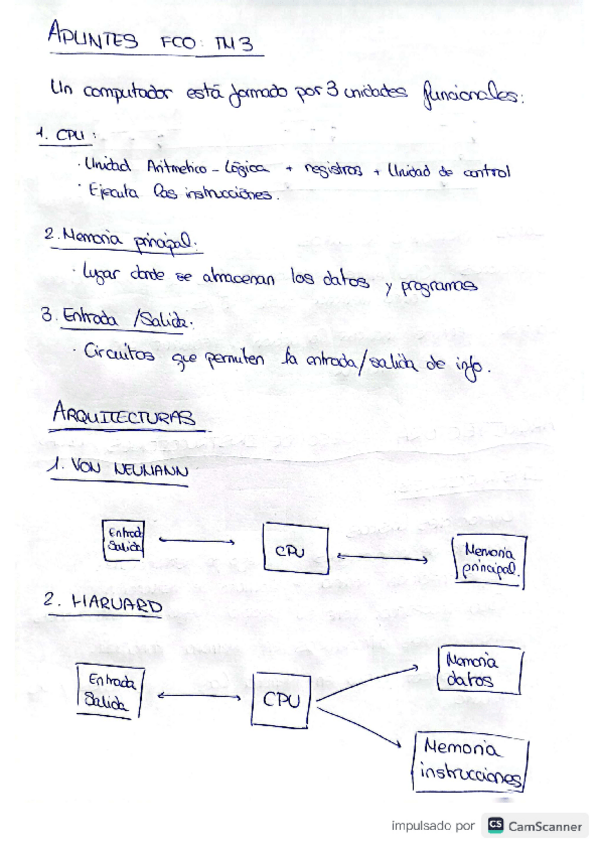 APUNTES FCO: TM3
Un computador está formado por 3 unidades funcionales:
1. CPU:
· Unidad Aritmetico-Lógica + registros + Unidad de control
· Ejecuta las instrucciones.
2. Memoria principal.
· Lugar donde se almacenan los datos y programas
3. Entrada /Salida.
· Circuitos que permiten la entrada/salida de info.
ARQUITECTURAS
1. VON NEUMANN
Entrad
Salida
CPU
Memoria
principal.
2. HARVARD
Entrada
Salida
CPU
Memoria
datos
Memoria
instrucciones
impulsado por CS CamScanner